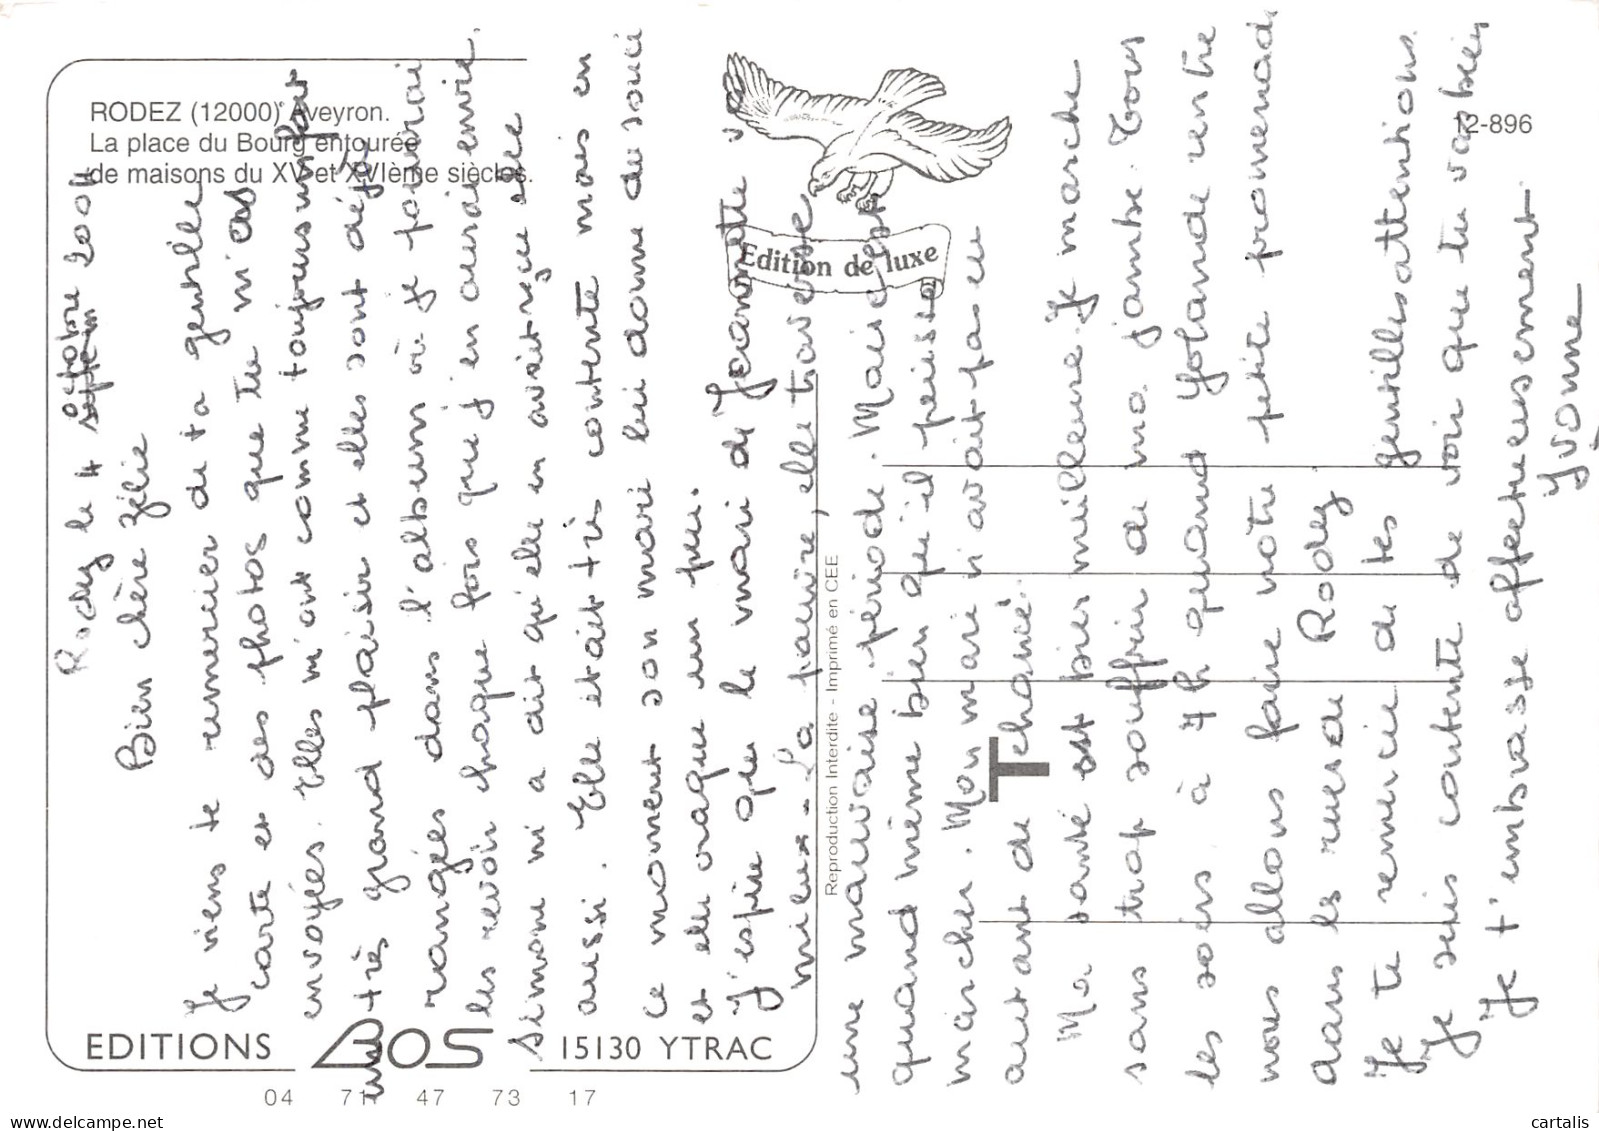 RODEZ (12000) Aveyron.
La place du Bourg entourée
de maisons du XV et XVIème siècles.
12-896
Edition de luxe
Reproduction Interdite - Imprimé en CEE
EDITIONS BOS 15130 YTRAC
04 71 47 73 17
T
Rodez le 4 septem octobre 2004
Bien chère Zélie
Je viens te remercier de ta gentille
carte et des photos que tu m'as
envoyées. Elles m'ont comme toujours fait
un très grand plaisir et elles sont déjà
rangées dans l'album où je pourrai
les revoir chaque fois que j'en aurai envie.
Simone m'a dit qu'elle en avait reçu elle
aussi. Elle était très contente mais en
ce moment son mari lui donne du souci
et elle craque un peu.
J'espère que le mari de Jeannette va
mieux - La pauvre, elle traverse
une mauvaise période. Mais c'est
quand même bien qu'il puisse
marcher. Mon mari n'avait pas eu
autant de chance.
Ma santé est bien meilleure. Je marche
sans trop souffrir de ma jambe. Tous
les soirs à 7h quand Yolande rentre
nous allons faire notre petite promenade
dans les rues de Rodez
Je te remercie de tes gentilles attentions.
Je suis contente de voir que tu vas bien
Je t'embrasse affectueusement
Yvonne
cartalis